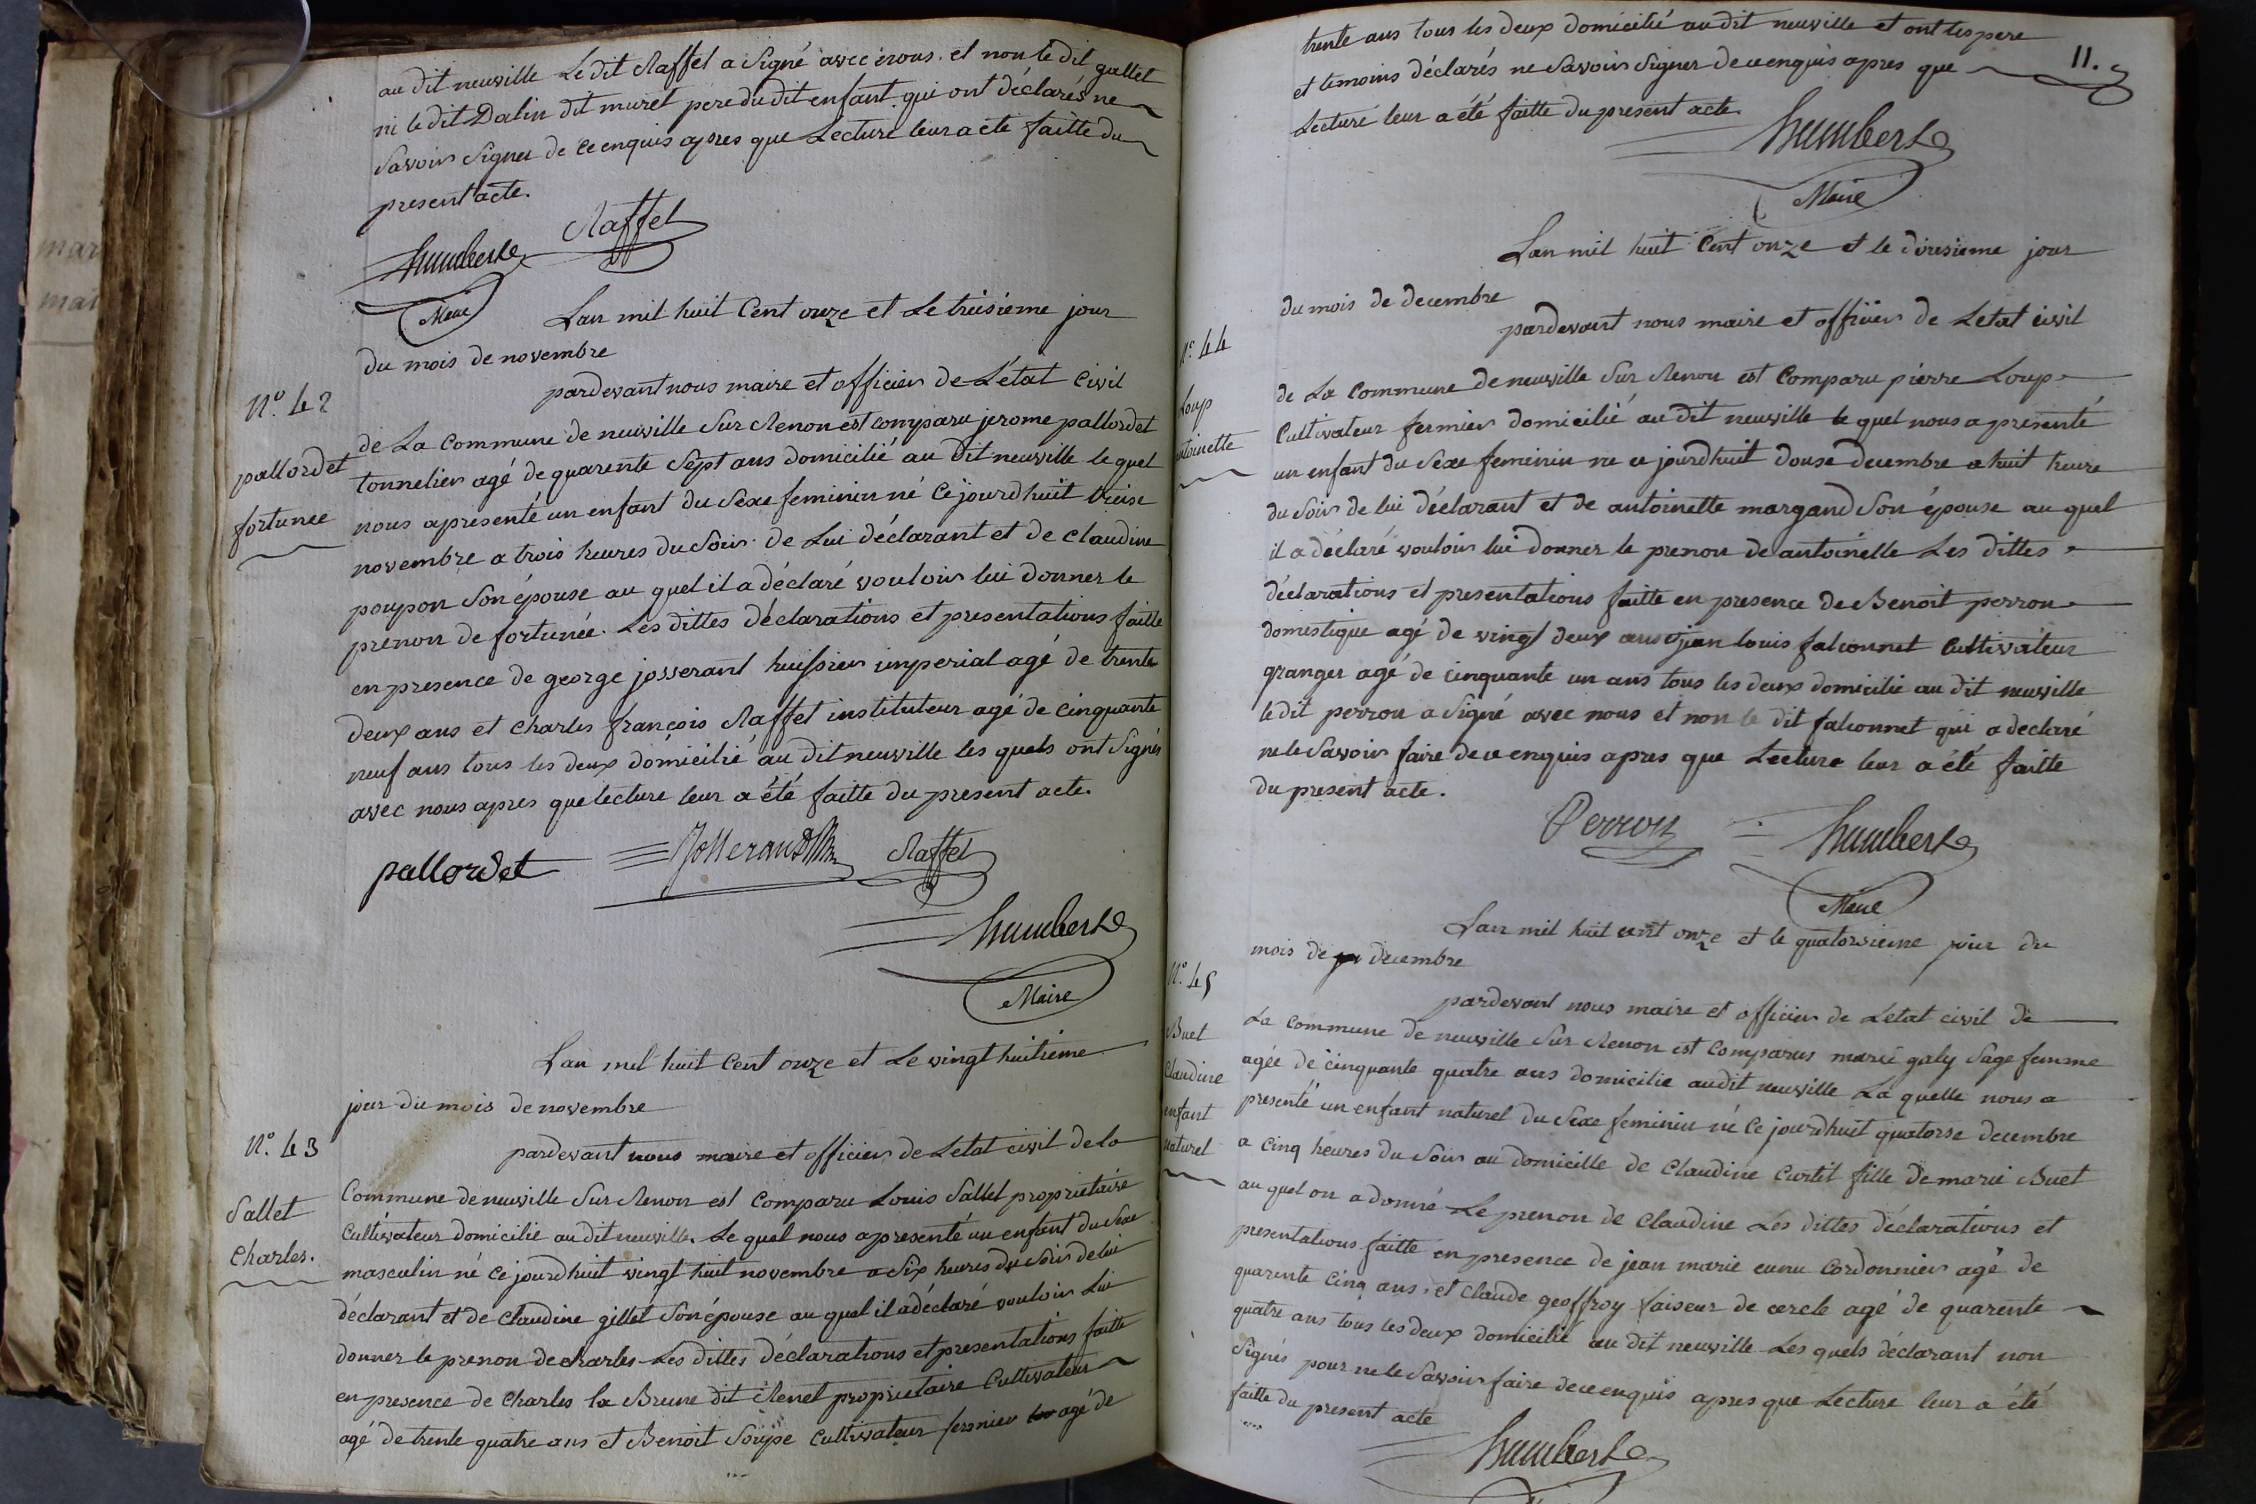 au dit neuville Le dit Raffet a Signé avec nous. et non le dit gallet
ni le dit Dalin dit muret pere du dit enfant. qui ont déclarés ne
Savoir Signer de ce enquis apres que Lecture leur a eté faitte du
present acte.
Raffet
humbert
Maire
Lan mil huit Cent onze et Le treisieme jour
du mois de novembre
pardevant nous maire et officier de Létat Civil
N.º 42
de La Commune de neuville Sur Renon est comparu jerome pallordet
pallordet
tonnelier agé de quarente Sept ans domicilié au dit neuville le quel
fortunee
nous apresenté un enfant du Sexe feminin né Cejourdhuit treise
novembre a trois heures du Soir. de Lui déclarant et de claudine
poupon Son épouse au quel il a déclaré vouloir lui donner le
prenon de fortunée. Les dittes déclarations et presentations faitte
en presence de george josserant huissier imperial agé de trente
deux ans et Charles françois Raffet instituteur agé de cinquante
neuf ans tous les deux domicilié au dit neuville les quels ont Signés
avec nous apres que lecture leur a été faitte du present acte.
pallordet
Josserand
Raffet
humbert
Maire
Lan mil huit Cent onze et Le vingt huitieme
jour du mois de novembre
N.º 43
pardevant nous maire et officier de Letat civil de la
Sallet
Commune de neuville Sur Renon est Comparu Louis Sallet proprietaire
Charles.
Cultivateur domicilié au dit neuville. Le quel nous apresenté un enfant du Sexe
masculin né ce jourdhuit vingt huit novembre a Six heures du Soir de lui
déclarant et de Claudine gillet Son épouse au quel il a déclaré vouloir Lui
donner le prenon de charles Les dittes déclarations et presentations faitte
en presence de Charles la Brune dit Renel proprietaire Cultivateur
agé de trente quatre ans et Benoit Soupe Cultivateur fermier agé de
trente ans tous les deux domicilié au dit neuville et ont les pere
11.
et temoins déclarés ne Savoir Signer de ce enquis apres que
Lecture leur a été faitte du present acte.
humbert
Maire
Lan mil huit Cent onze et le dousieme jour
du mois de decembre
pardevant nous maire et officier de Létat civil
N.º 44
de La Commune de neuville Sur Renon est Comparu pierre Loup
Loup
Cultivateur fermier domicilié au dit neuville le quel nous a presenté
antoinette
un enfant du Sexe feminin ne ce jourdhuit douse decembre a huit heure
du Soir de lui déclarant et de antoinette margand Son épouse au quel
il a déclaré vouloir lui donner le prenon de antoinette Les dittes
déclarations et presentations faitte en presence de Benoit perron
domestique agé de vingt deux ans et jean louis falconnet Cultivateur
granger agé de cinquante un ans tous les deux domicilié au dit neuville
le dit perron a Signé avec nous et non le dit falconnet qui a declaré
ne le Savoir faire de ce enquis apres que Lecture leur a été faitte
du present acte.
Perron
humbert
Maire
Lan mil huit cent onze et le quatorsieme jour du
mois de decembre
N.º 45
pardevant nous maire et officier de Létat civil de
Buet
La Commune de neuville Sur Renon est Comparus marie galy Sage femme
Claudine
agée de cinquante quatre ans domicilie audit neuville La quelle nous a
enfant
presenté un enfant naturel du Sexe feminin né Ce jourdhuit quatorse decembre
naturel
a Cinq heures du Soir au domicille de Claudine Curtil fille de marie Buet
au quel on a donné Le prenon de Claudine Les dittes déclarations et
presentations faitte en presence de jean marie cunu Cordonnier agé de
quarente cinq ans. et Claude geoffroy faiseur de cercle agé de quarente
quatre ans tous les deux domicilié au dit neuville Les quels déclarant non
Signés pour ne le Savoir faire de ce enquis apres que Lecture leur a été
faitte du present acte
humbert